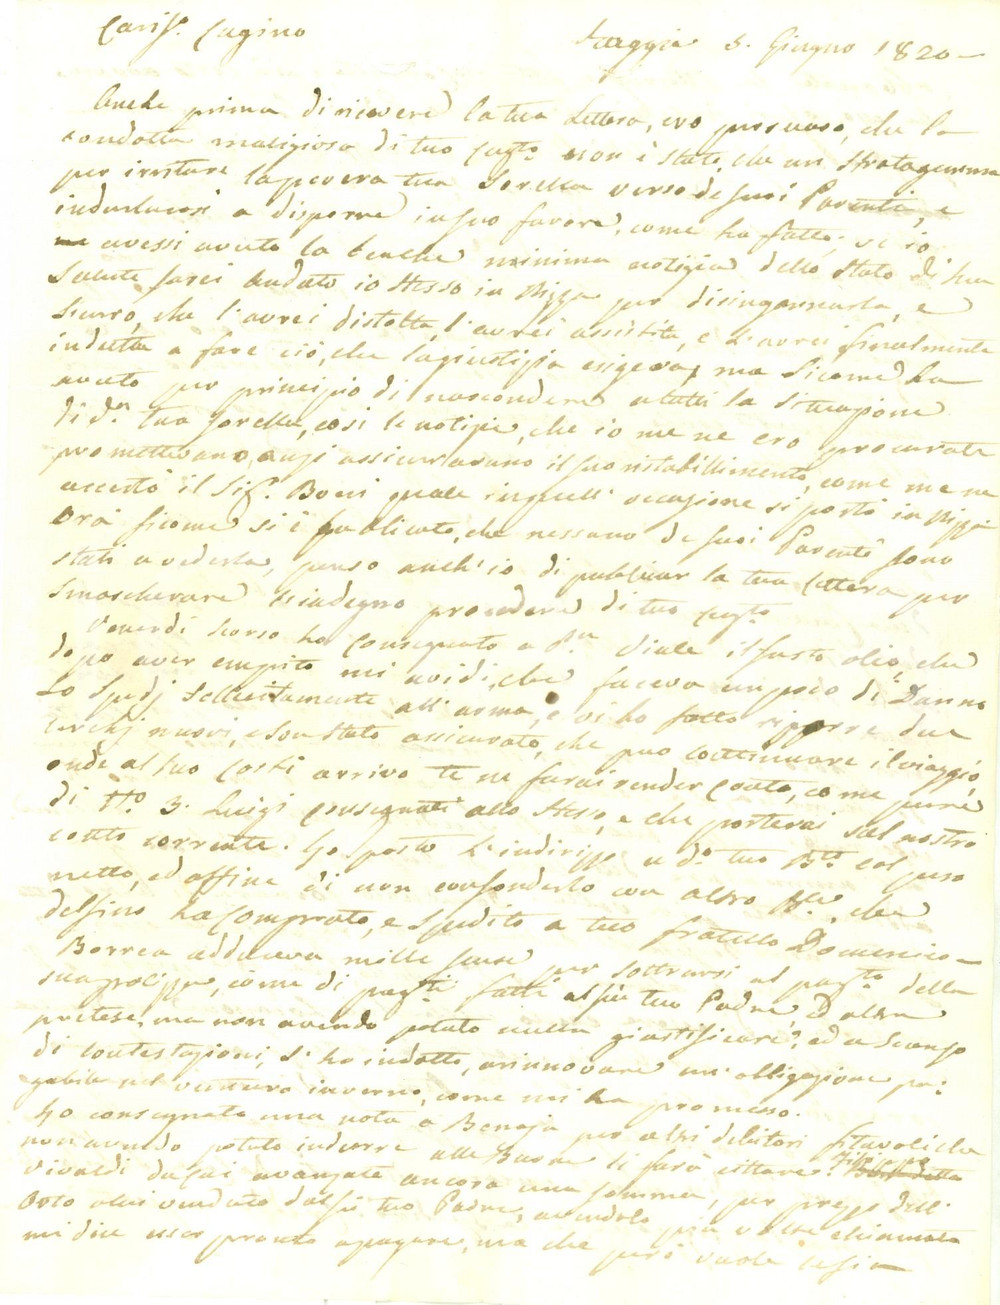 Cariss.º Cugino
Taggia 5. Giugno 1820 —
Anche prima di ricevere la tua Lettera, ero persuaso, che la
condotta maligiosa di tuo Cog.to non è stato, che un Stratagemma
per irritare la povera tua Sorella verso de suoi Parenti, e
indurlacosi a disporre in suo favore, come ha fatto; se io
avessi avuto la benche minima notizia dello Stato di sua
Salute sarei andato io stesso in Nizza per disingannarla, e
sicuro, che l'avrei distolta, l'avrei assistita, e l'avrei finalmente
indotta a fare ciò, che la giustizia esigeva; ma siccome ha
avuto per principio di nascondere a tutti la situazione
di d.a tua sorella, così le notizie, che io me ne ero procurate
promettevano, anzi assicuravano il suo ristabillimento, come me ne
accertò il Sig.r Boeri quale in quell'occasione si portò in Nizza
Ora siccome si è publicato, che nessuno de suoi Parenti sono
stati a vederla, penso anch'io di publicar la tua Lettera per
smascherare l'indegno procedere di tuo Cog.to
Venerdì scorso ho consegnato a P.n Viale il fusto olio, che
dopo aver empito mi avidi, che faceva un poco di Danno
Lo spedj sollecitamente all'arma, e vi ho fatto riporre due
cerchj nuovi, e son stato assicurato, che può continuare il viaggio,
onde al suo costì arrivo te ne farai render conto, come pure
di 3. Luigi consegnati allo stesso, e che porterai sul nostro
conto corrente. Ho posto l'indirizzo a d.o tuo col peso
netto, ed affine di non confonderlo con altro, che
delfino ha comprato, e spedito a tuo fratello Domenico —
Borrea adduceva mille scuse per sottrarsi al pag.to della
sua polizza, come di pag.ti fatti al fù tuo Padre ed altre
pretese, ma non avendo potuto nulla giustificare, ed a scanso
di contestazioni, l'ho indotto, a rinnovare un'obbligazione pa=
gabile nel venturo inverno, come mi ha promesso.
Ho consegnata una nota a Benaja per altri debitori
non avendo potuto indurre alle Buone li farà cittare.
Vivaldi da cui avanzate ancora una somma, per prezzo dell'
Orto olivi venduto dal fù tuo Padre, avendolo più volte chiamato
mi dice esser pronto a pagare, ma che però vuole